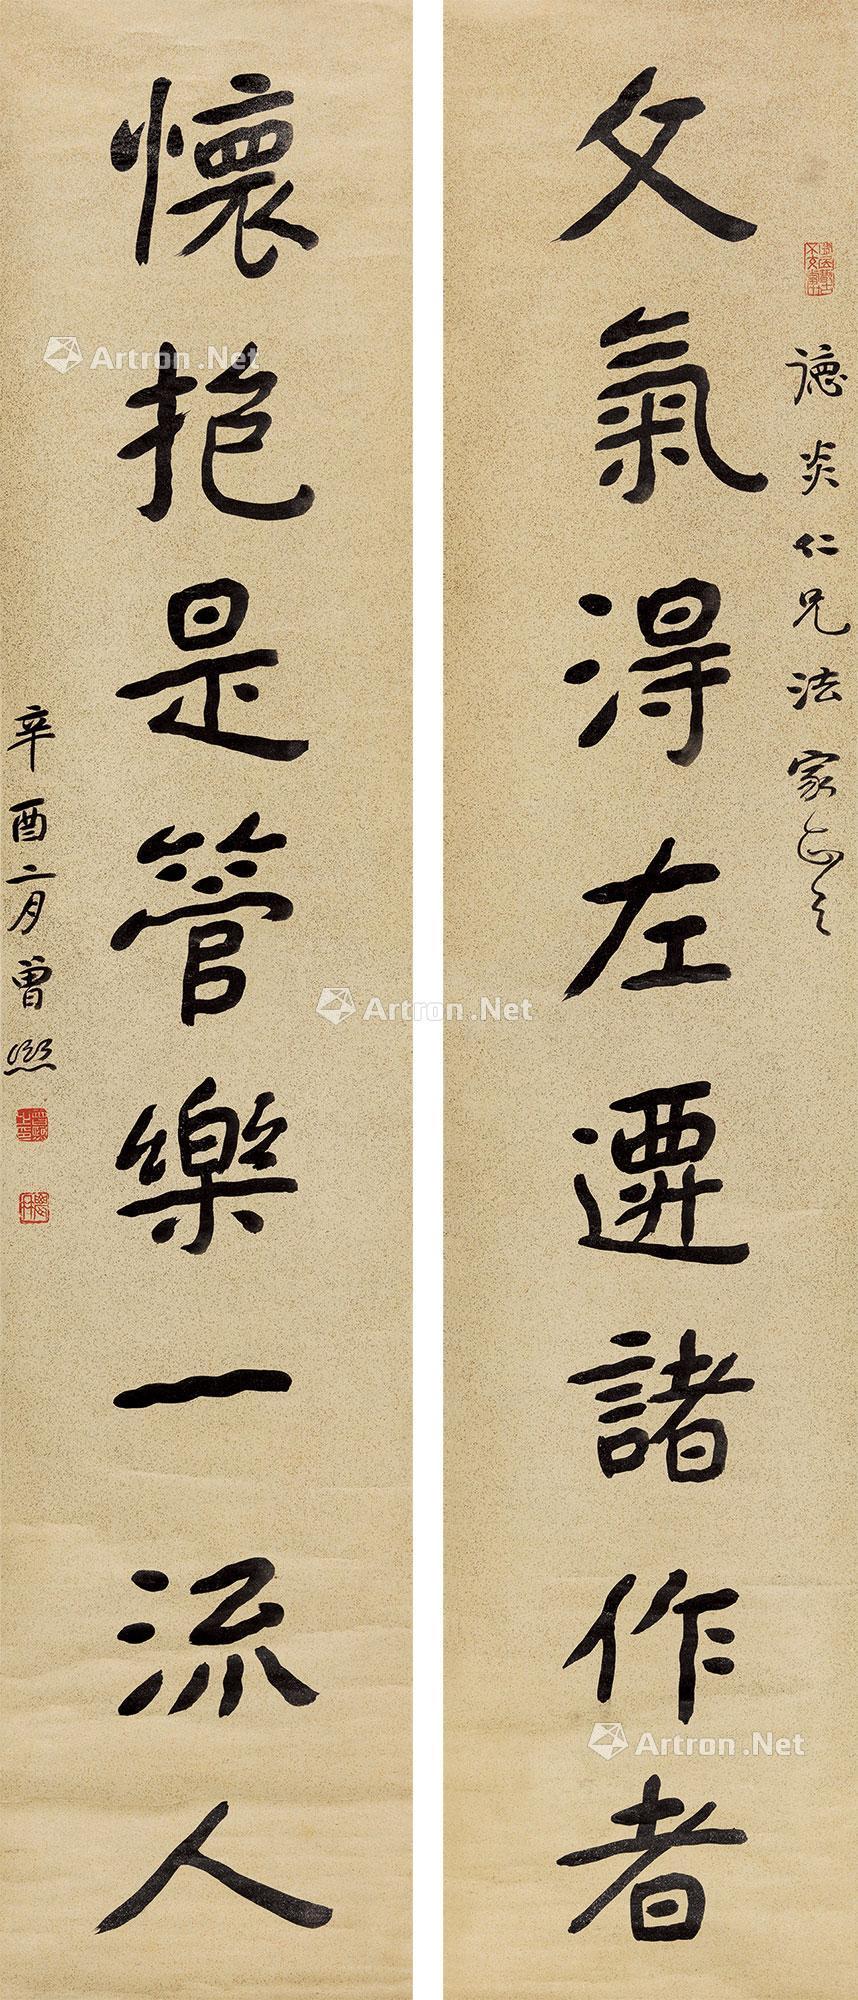 文氣得左遷諸作者
德炎仁兄法家正之
懷抱是管樂一流人
辛酉二月曾熙
Artron.Net
Artron.Net
Artron.Net